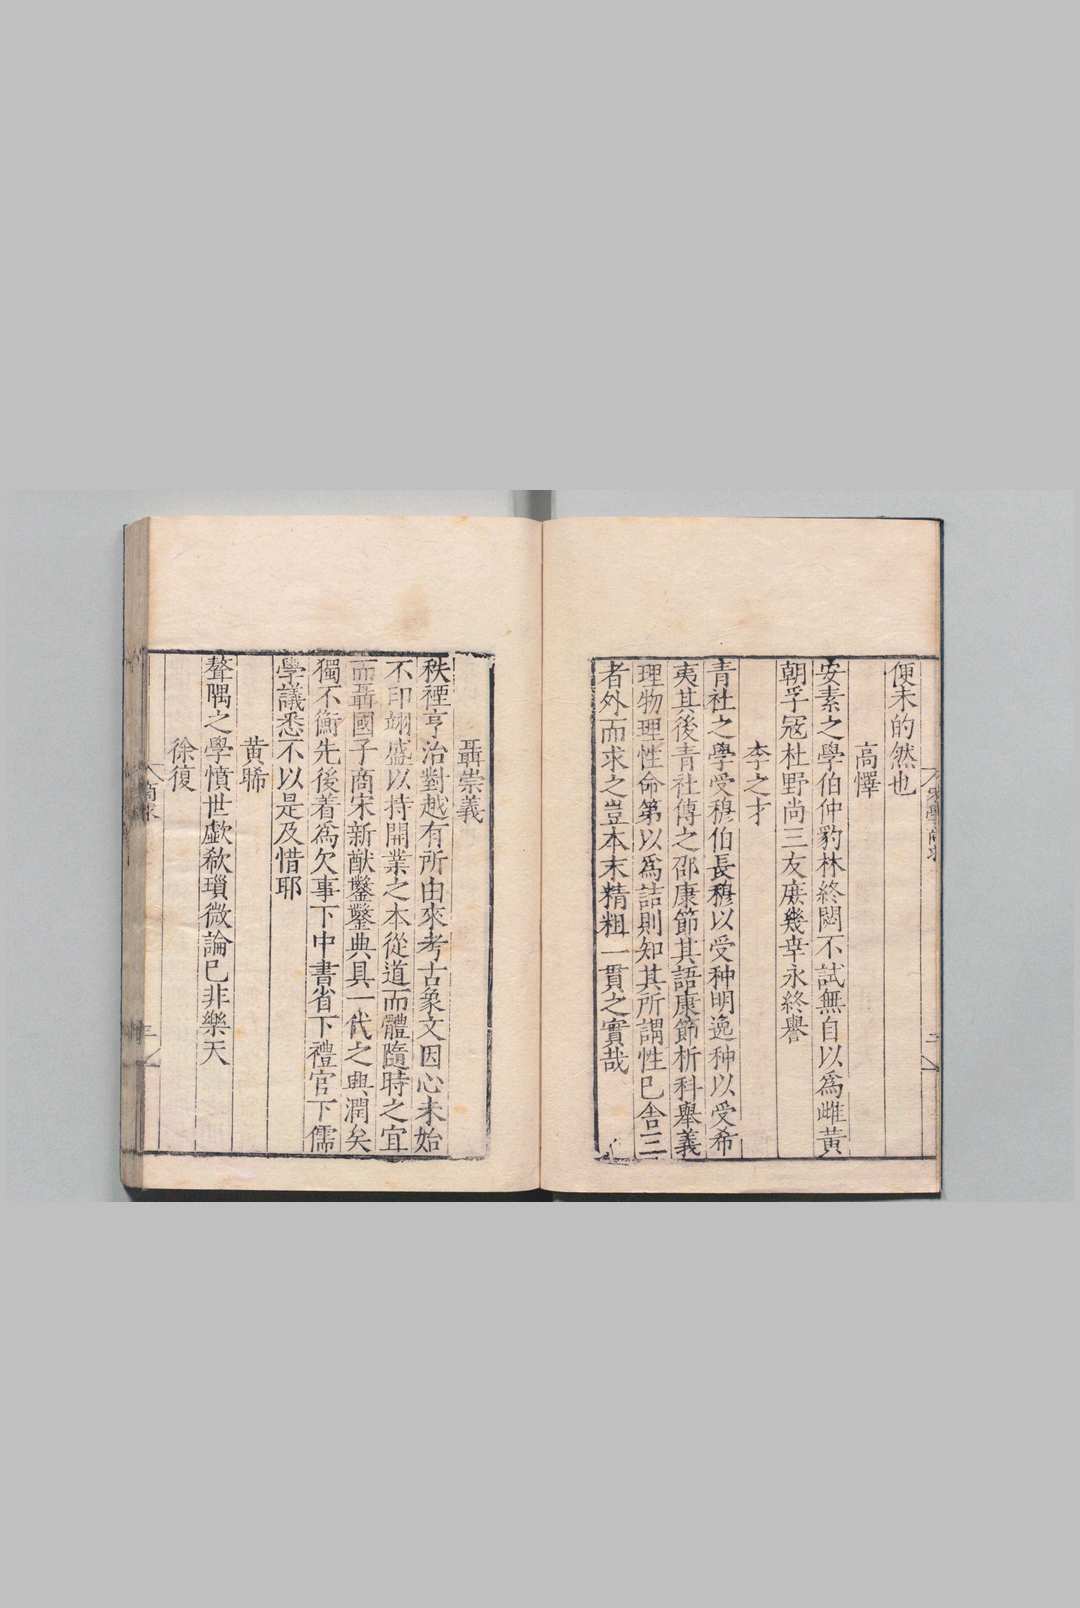 便未的然也
高懌
安素之學伯仲豹林終閟不試無自以爲雌黃
朝孚冦杜野尚三友庻幾幸永終譽
李之才
青社之學受穆伯長穆以受种明逸种以受希
夷其後青社傳之邵康節其語康節析科舉義
理物理性命第以爲詰則知其所謂性已舍三
者外而求之豈本末精粗一貫之實哉
聶崇義
秩禋亨治對越有所由來考古象文因心未始
不印翊盛以持開業之本從道而體隨時之宜
而聶國子商宋新猷鑿鑿典具一代之典潤矣
獨不衡先後着爲欠事下中書省下禮官下儒
學議悉不以是及惜耶
黃晞
聱隅之學憤世歔欷瑣微論已非樂天
徐復